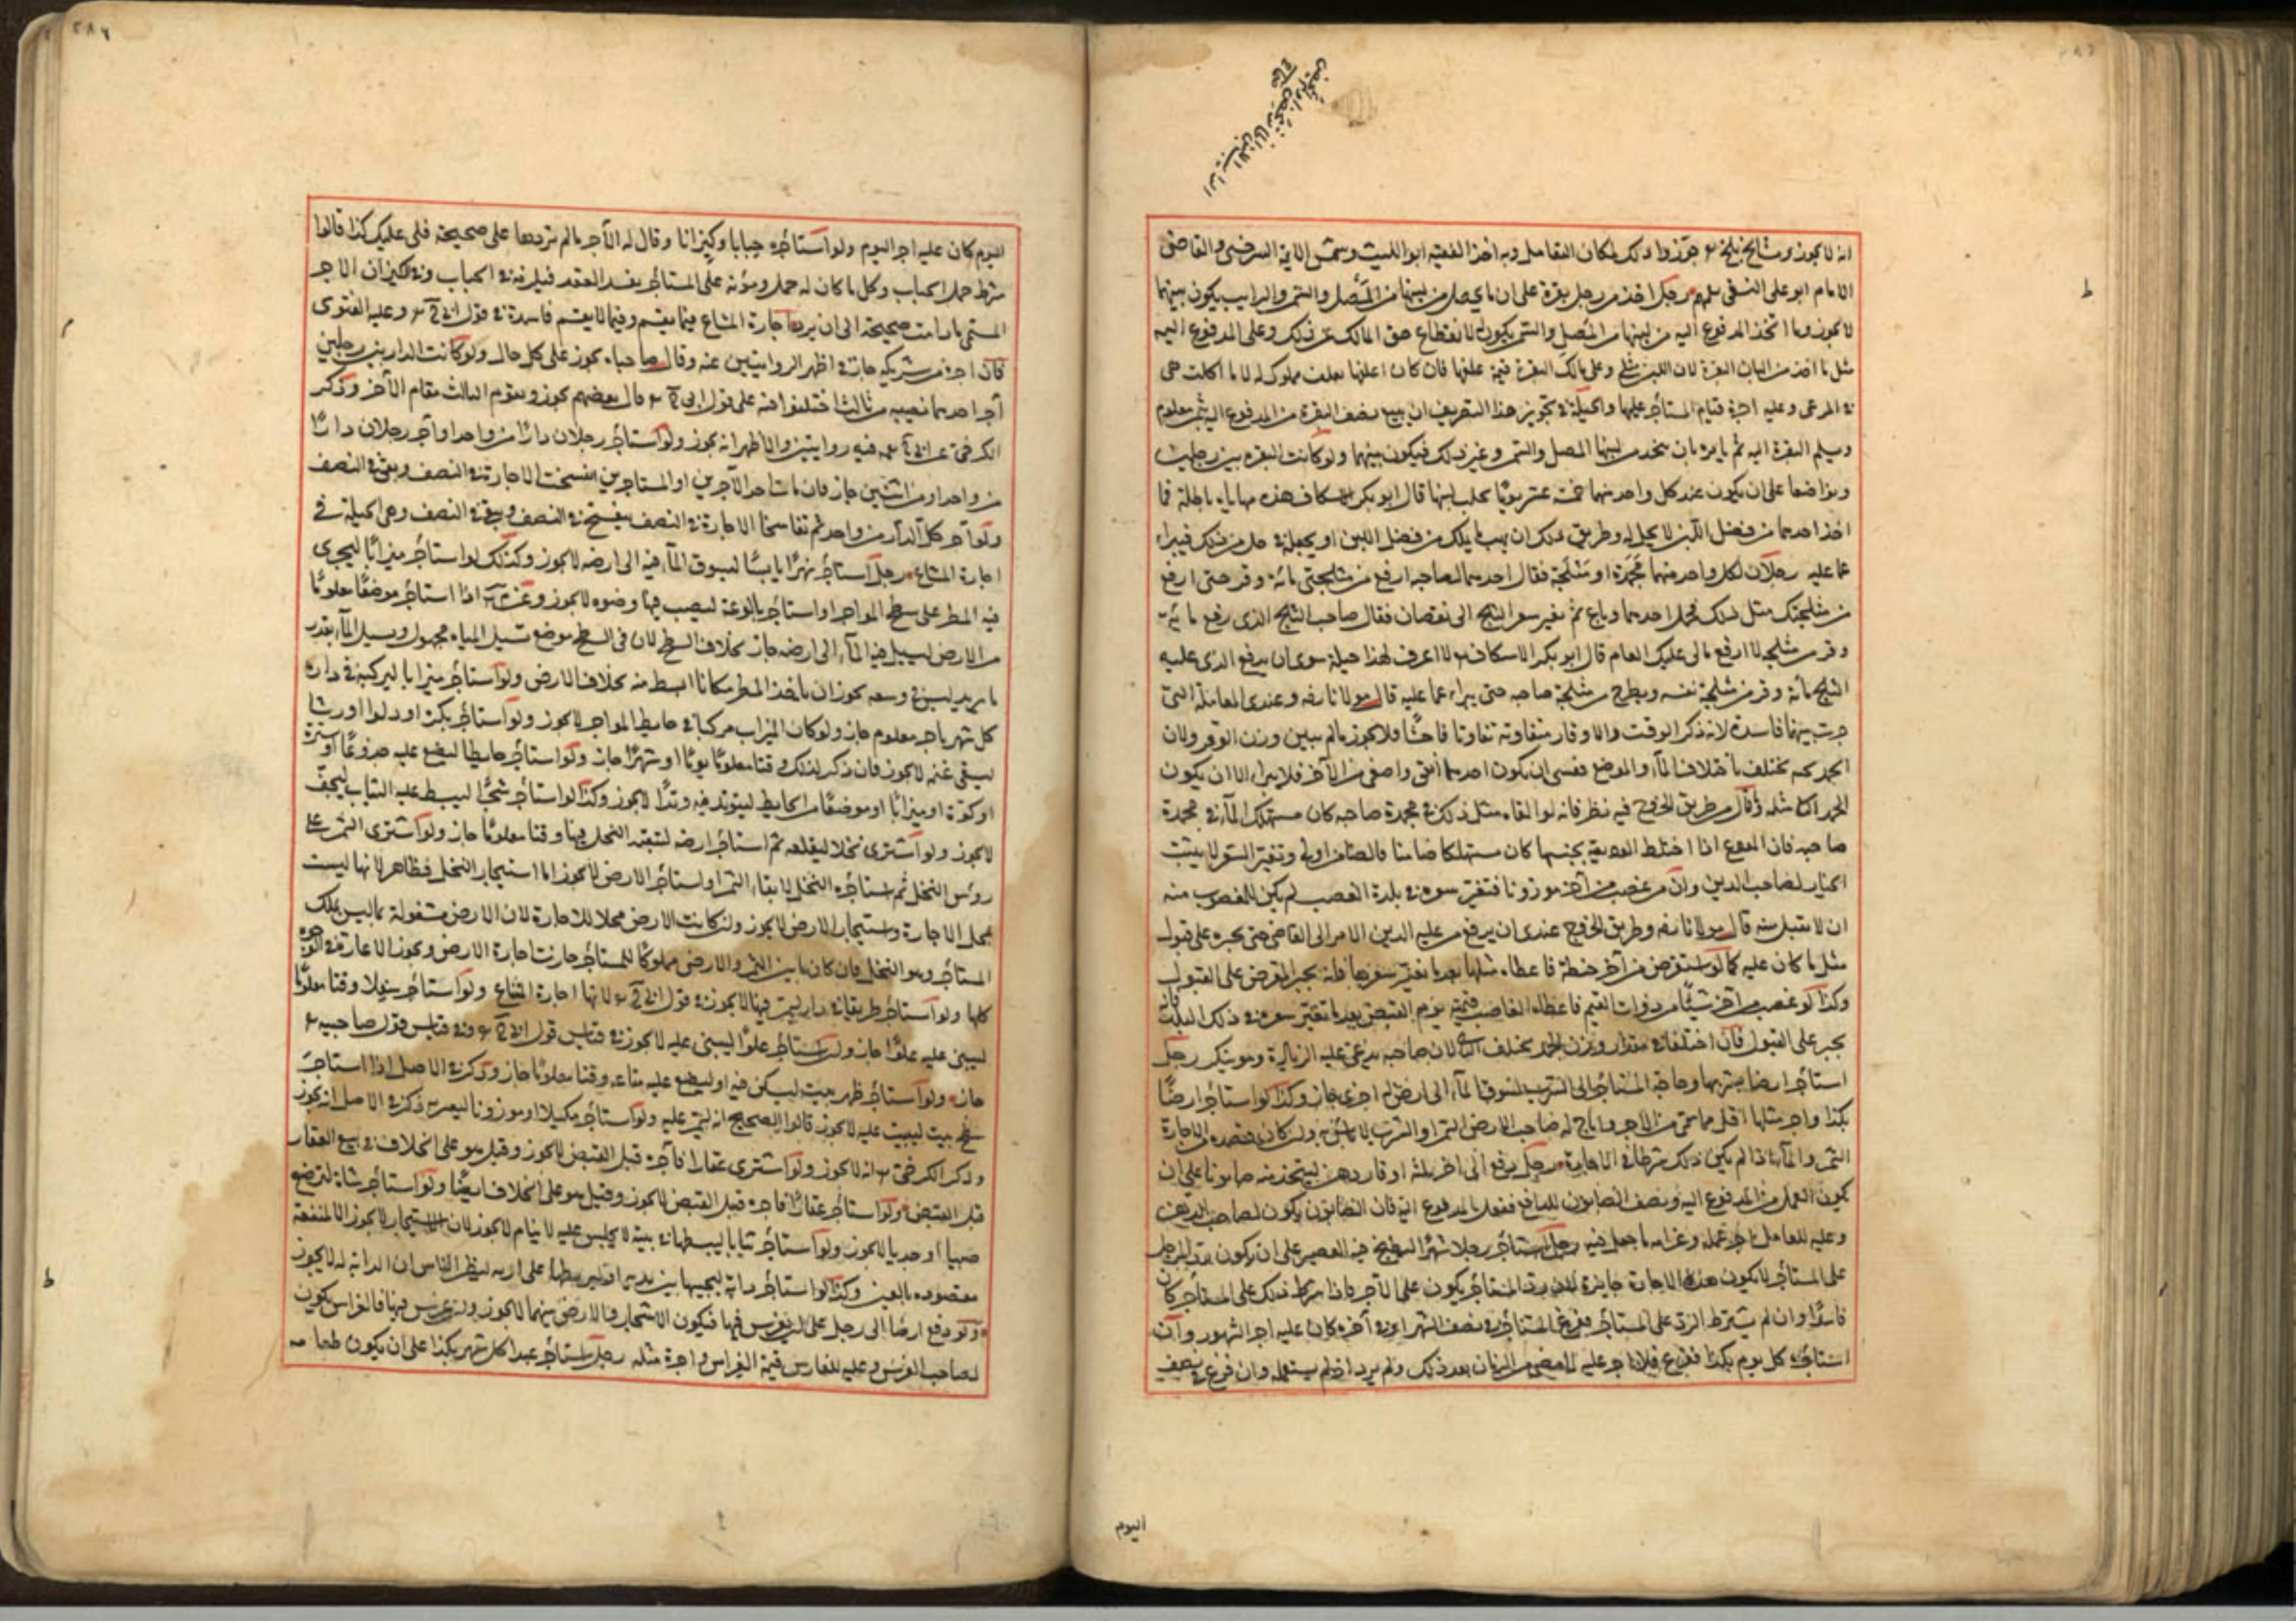 انه لا يجوز ومشايخ بلخ جوزوا ذلك لمكان التعامل وبه اخذ الفقيه ابو الليث وشمس الايمة السرخسي والقاضي
الامام ابو على النسفي رجل اخذ من رجل بقرة على ان ما يحصل من لبنها من المصل والسمن والرايب يكون بينهما
لا يجوز وما اتخذ المدفوع اليه من لبنها من المصل والسمن يكون له لانقطاع حق المالك عن ذلك وعلى المدفوع اليه
مثل ما اخذ من البان البقرة لان اللبن مثلي وعلى مالك البقرة قيمة علفها فان كان اعلفها بعلف مملوك له لا ما اكلت هي
في المرعى وعليه اجرة قيام المستأجر عليها والحيلة في تجويز هذا التصرف ان يبيع نصف البقرة من المدفوع اليه بثمن معلوم
ويسلم البقرة اليه ثم يامره بان يتخذ من لبنها المصل والسمن وغير ذلك فيكون بينهما ولو كانت البقرة بين رجلين
وتواضعا على ان يكون عند كل واحد منهما خمسة عشر يوما يحلب لبنها قال ابو بكر الاسكاف هذه مهاياة باطلة فما
اخذ احدهما من فضل اللبن لا يحل له وطريق ذلك ان يهب ما يملك من فضل اللبن او يجعله في حل من ذلك فيبراء
عما عليه رجلان لكل واحد منهما مجمدة او مثلجة فقال احدهما لصاحبه ارفع من مثلجتي مائة وقر حتى ارفع
من مثلجتك مثل ذلك فحمل احدهما وباع ثم تغير سعر الثلج الى نقصان فقال صاحب الثلج الذي رفع مائة
وقر من مثلجه لا ارفع مالي عليك العام قال ابو بكر الاسكاف لا اعرف لهذا حيلة سوى ان يدفع الذي عليه
الثلج مائة وقر من مثلجة نفسه ويطرح في مثلجة صاحبه حتى يبراء عما عليه قال مولانا رضه وعندي المعاملة التي
جرت بينهما فاسدة لانه ذكر الوقت والاوقار متفاوتة تفاوتا فاحشا ولا يجوز ما لم يبين وزن الوقر ولان
الجمد يختلف باختلاف الماء والموضع فعسى ان يكون احدهما انقى واصفى من الآخر فلا يبراء الا ان يكون
الجمد مثله وقال من طريق الخروج فيه نظر فانه لو القاه مثل ذلك في مجمدة صاحبه كان مستهلك الماء في مجمدة
صاحبه فان المودع اذا اختلط الوديعة بجنسها كان مستهلكا ضامنا فالضامن اولى وتغير السعر لا يثبت
الخيار لصاحب الدين وان من غصب من آخر موزونا فتغير سعره في بلدة الغصب لم يكن للمغصوب منه
ان لا يقبل منه قال مولانا رضه وطريق الخروج عندي ان يرفع من عليه الدين الامر الى القاضي حتى يجبره على قبول
مثل ما كان عليه كما لو استقرض من آخر حنطة فاعطاه مثلها بعد ما تغير سعرها فانه يجبر المقرض على القبول
وكذا لو غصب من آخر شيئا من ذوات القيم فاعطاه الغاصب قيمته يوم القبض بعد ما تغير سعره في ذلك البلد فانه
يجبر على القبول فان اختلفا في مقدار وزن الجمد يحلف لان صاحبه يدعي عليه الزيادة وهو ينكر رجل
استأجر ارضا بشربها وحاجة المستأجر الى الشرب لسوق الماء الى ارض له اخرى جاز وكذا لو استأجر ارضا
بكذا واجر مثلها اقل مما سمى من الاجر واباح له صاحب الارض الثمر او الشرب لا باس به وان كان قصده من الاجارة
الثمر والماء اذا لم يكن ذلك شرطا في الاجارة رجل دفع الى آخر ثلثة اوقار دهن ليتخذ منه صابونا على ان
يكون العمل من المدفوع اليه ونصف الصابون للدافع ففعل المدفوع اليه فان الصابون يكون لصاحب الدهن
وعليه للعامل اجر عمله وغرامة ما جعل فيه رجل استأجر رجلا شهرا ليطبخ فيه العصير على ان يكون
على المستأجر لا يكون هذه الاجارة جايزة لان رد المستأجر يكون على الآجر فاذا شرط ذلك على المستأجر كان
فاسدا وان لم يشترط الرد على المستأجر ففرغ المستأجر في نصف الشهر او في آخره كان عليه اجر الشهور وان
استأجره كل يوم بكذا ففرغ فلا اجر عليه لما مضى من الزمان بعد ذلك ولم يرد اذا لم يستعمله وان فرغ في نصف
اليوم
اليوم كان عليه اجر اليوم ولو استأجره حبابا وكيزانا وقال له الآجر ما لم تردها على صحيحة فلي عليك كذا قالوا
شرط حمل الحباب وكل ما كان له حمل ومؤنة على المستأجر يفسد العقد قبل في الحباب وفي الكيزان الاجر
المسمى ما دامت صحيحة الى ان يردها اجارة المشاع فيما يقسم وفيما لا يقسم فاسدة في قول ابي ح وعليه الفتوى
فان اجره من شريكه جاز في اظهر الروايتين عنه وقال صاحباه يجوز على كل حال ولو كانت الدار بين رجلين
آجر احدهما نصيبه من ثالث اختلفوا فيه على قول ابي ح قال بعضهم يجوز ويقوم الثالث مقام الآخر وذكر
الكرخي عن ابي ح فيه روايتين والاظهر انه يجوز ولو استأجر رجلان دارا من واحد او آجر رجلان دارا
من واحد او من اثنين جاز فان مات احد الآجرين او المستاجرين انفسخت الاجارة في النصف وبقي في النصف
ولو آجر كل الدار من واحد ثم تفاسخا الاجارة في النصف ينفسخ في النصف ويبقى في النصف وهي الحيلة في
اجارة المشاع رجل استأجر نهرا يابسا ليسوق الماء فيه الى ارضه لا يجوز وكذلك لو استأجر ميزابا ليجري
فيه المطر على سطح المؤاجر او استأجر بالوعة ليصب فيها وضوه لا يجوز وعن اذا استأجر موضعا معلوما
من الارض ليسيل فيه الماء الى ارضه جاز بخلاف السطح لان في السطح موضع تسيل المياه مجهول ويسيل الماء بقدر
ما يريد ليس في وسعه يجوز ان ياخذ المطر مكانا ابسط منه بخلاف الارض ولو استأجر ميزابا ليركبه في داره
كل شهر باجر معلوم جاز ولو كان الميزاب مركبا في حايط المؤاجر لا يجوز ولو استأجر بكرة او دلوا او رشا
ليسقي غنمه لا يجوز فان ذكر لذلك وقتا معلوما يوما او شهرا جاز ولو استأجر حايطا ليضع عليه جذوعا او سترة
او كوة او ميزابا او موضعا من الحايط ليتوتد فيه وتدا لا يجوز وكذا لو استأجر شجرا ليبسط عليه الثياب ليجف
لا يجوز ولو اشترى نخلا ليقلعه ثم استأجر ارضه لتبقية النخل فيها وقتا معلوما جاز ولو اشترى الثمر على
رؤس النخل ثم استأجر النخل لابقاء الثمر او استأجر الارض لا يجوز اما استيجار النخل فظاهر لانها ليست
بمحل الاجارة واستيجار الارض لا يجوز وان كانت الارض محلا للاجارة لان الارض مشغولة بما ليس بملك
المستأجر وهو النخل فان كان ما بين الثمر والارض مملوكا للمستأجر جازت اجارة الارض ويجوز الاعارة في الوجوه
كلها ولو استأجر طريقا في دار ليمر فيها لا يجوز في قول ابي ح لانها اجارة المشاع ولو استأجر سفلا وقتا معلوما
ليبني عليه علوا جاز ولو استأجر علوا ليبني عليه لا يجوز في قياس قول ابي ح وفي قياس قول صاحبيه
جاز ولو استأجر ظهر بيت ليسكن فيه او ليضع عليه متاعه وقتا معلوما جاز وذكر في الاصل اذا استأجر
سطح بيت ليبيت عليه لا يجوز قالوا الصحيح انه ولو استأجر مكيلا او موزونا ليعير به ذكر في الاصل انه يجوز
وذكر الكرخي انه لا يجوز ولو اشترى عقارا فآجره قبل القبض لا يجوز وقيل هو على الخلاف في بيع العقار
قبل القبض ولو استأجر عقارا فاجره قبل القبض لا يجوز وقيل هو على الخلاف ايضا ولو استأجر شاة لترضع
صبيا او جديا لا يجوز ولو استأجر ثيابا ليبسطها في بيته لا يجلس عليه لا ينام لا يجوز لان الاستيجار لا يجوز الا لمنفعة
مقصوده بالعين وكذا لو استأجر دابة ليجنبها بين يديه او ليربطها على اريه ليظن الناس ان الدابة له لا يجوز
ولو دفع ارضا الى رجل على ان يغرس فيها فيكون الاشجار والارض بينهما لا يجوز وان غرس فيها فالغراس يكون
لصاحب الغرس وعليه للغارس قيمة الغراس واجرة مثله رجل استأجر عبدا كل شهر بكذا على ان يكون طعامه